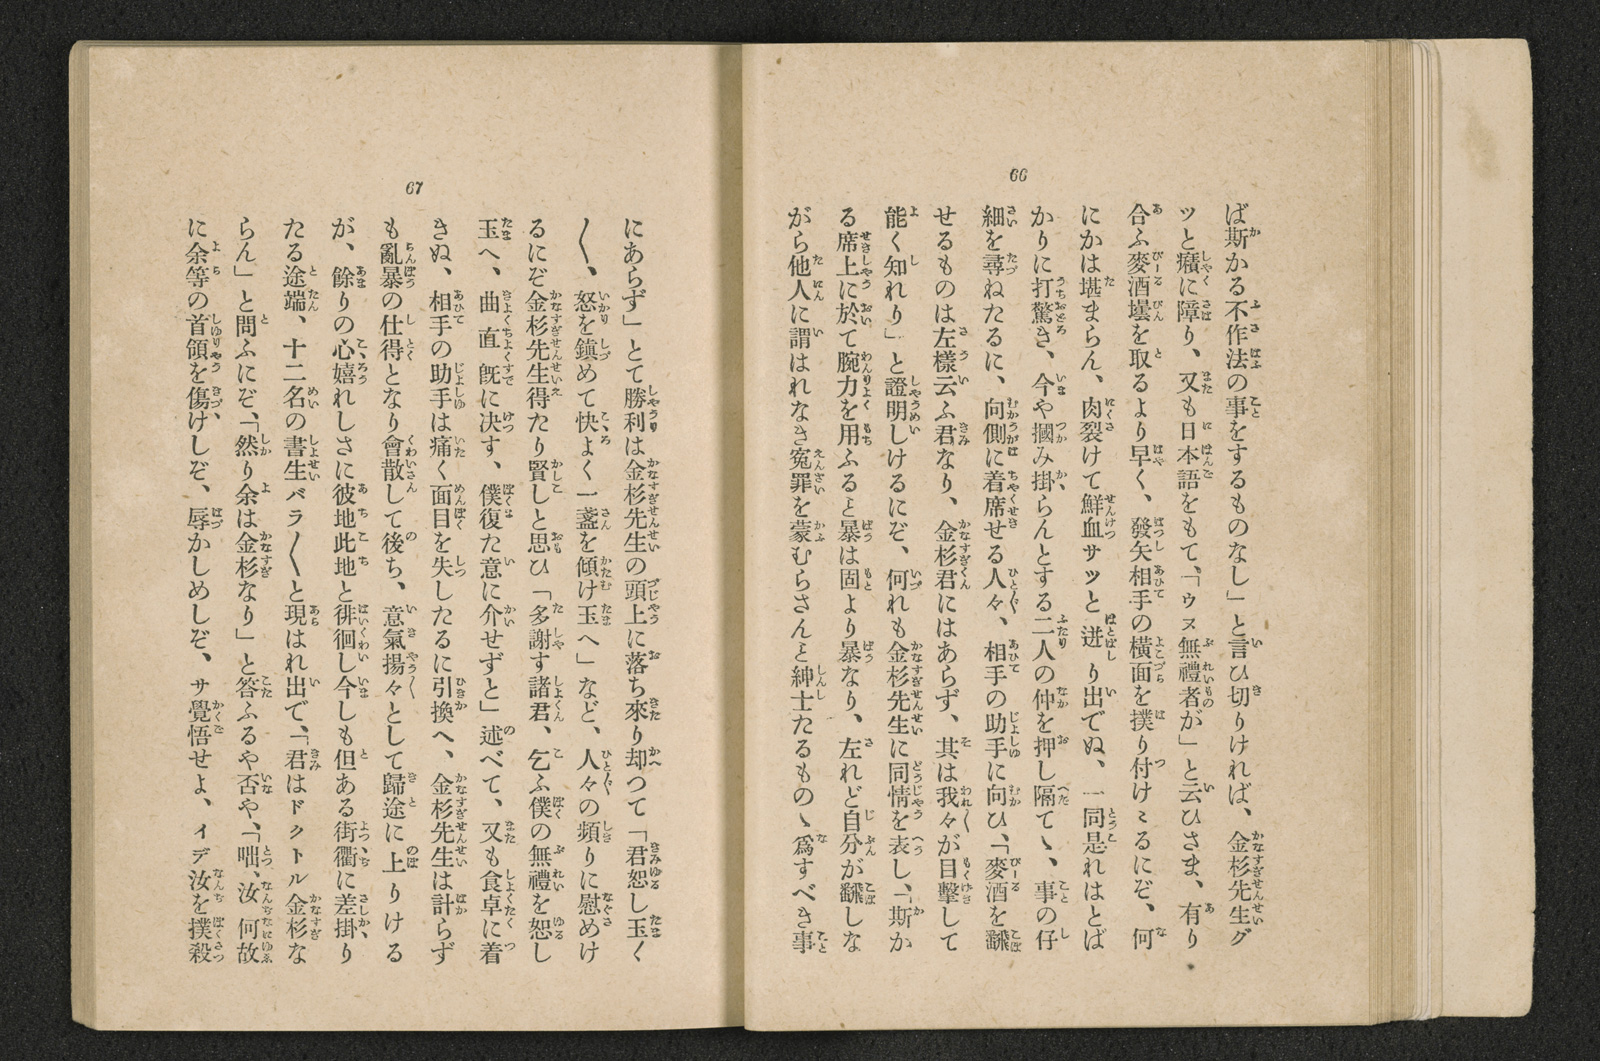 66
ば斯かる不作法の事をするものなし」と言ひ切りければ、金杉先生グ
ツと癪に障り、又も日本語をもて、「ウヌ無禮者が」と云ひさま、有り
合ふ麥酒壜を取るより早く、發矢相手の橫面を撲り付けゝるにぞ、何
にかは堪まらん、肉裂けて鮮血サツと迸り出でぬ、一同是れはとば
かりに打驚き、今や摑み掛らんとする二人の仲を押し隔てゝ、事の仔
細を尋ねたるに、向側に着席せる人々、相手の助手に向ひ、「麥酒を飜
せるものは左樣云ふ君なり、金杉君にはあらず、其は我々が目擊して
能く知れり」と證明しけるにぞ、何れも金杉先生に同情を表し、「斯か
る席上に於て腕力を用ふると暴は固より暴なり、左れど自分が飜しな
がら他人に謂はれなき寃罪を蒙むらさんと紳士たるものゝ爲すべき事
67
にあらず」とて勝利は金杉先生の頭上に落ち來り却つて「君恕し玉く
〱、怒を鎭めて快よく一盞を傾け玉へ」など、人々の頻りに慰めけ
るにぞ金杉先生得たり賢しと思ひ「多謝す諸君、乞ふ僕の無禮を恕し
玉へ、曲直既に決す、僕復た意に介せずと」述べて、又も食卓に着
きぬ、相手の助手は痛く面目を失したるに引換へ、金杉先生は計らず
も亂暴の仕得となり會散して後ち、意氣揚々として歸途に上りける
が、餘りの心嬉れしさに彼地此地と徘徊し今しも但ある街衢に差掛り
たる途端、十二名の書生バラ〱と現はれ出で、「君はドクトル金杉な
らん」と問ふにぞ、「然り余は金杉なり」と答ふるや否や、「咄、汝何故
に余等の首領を傷けしぞ、辱かしめしぞ、サ覺悟せよ、イデ汝を撲殺